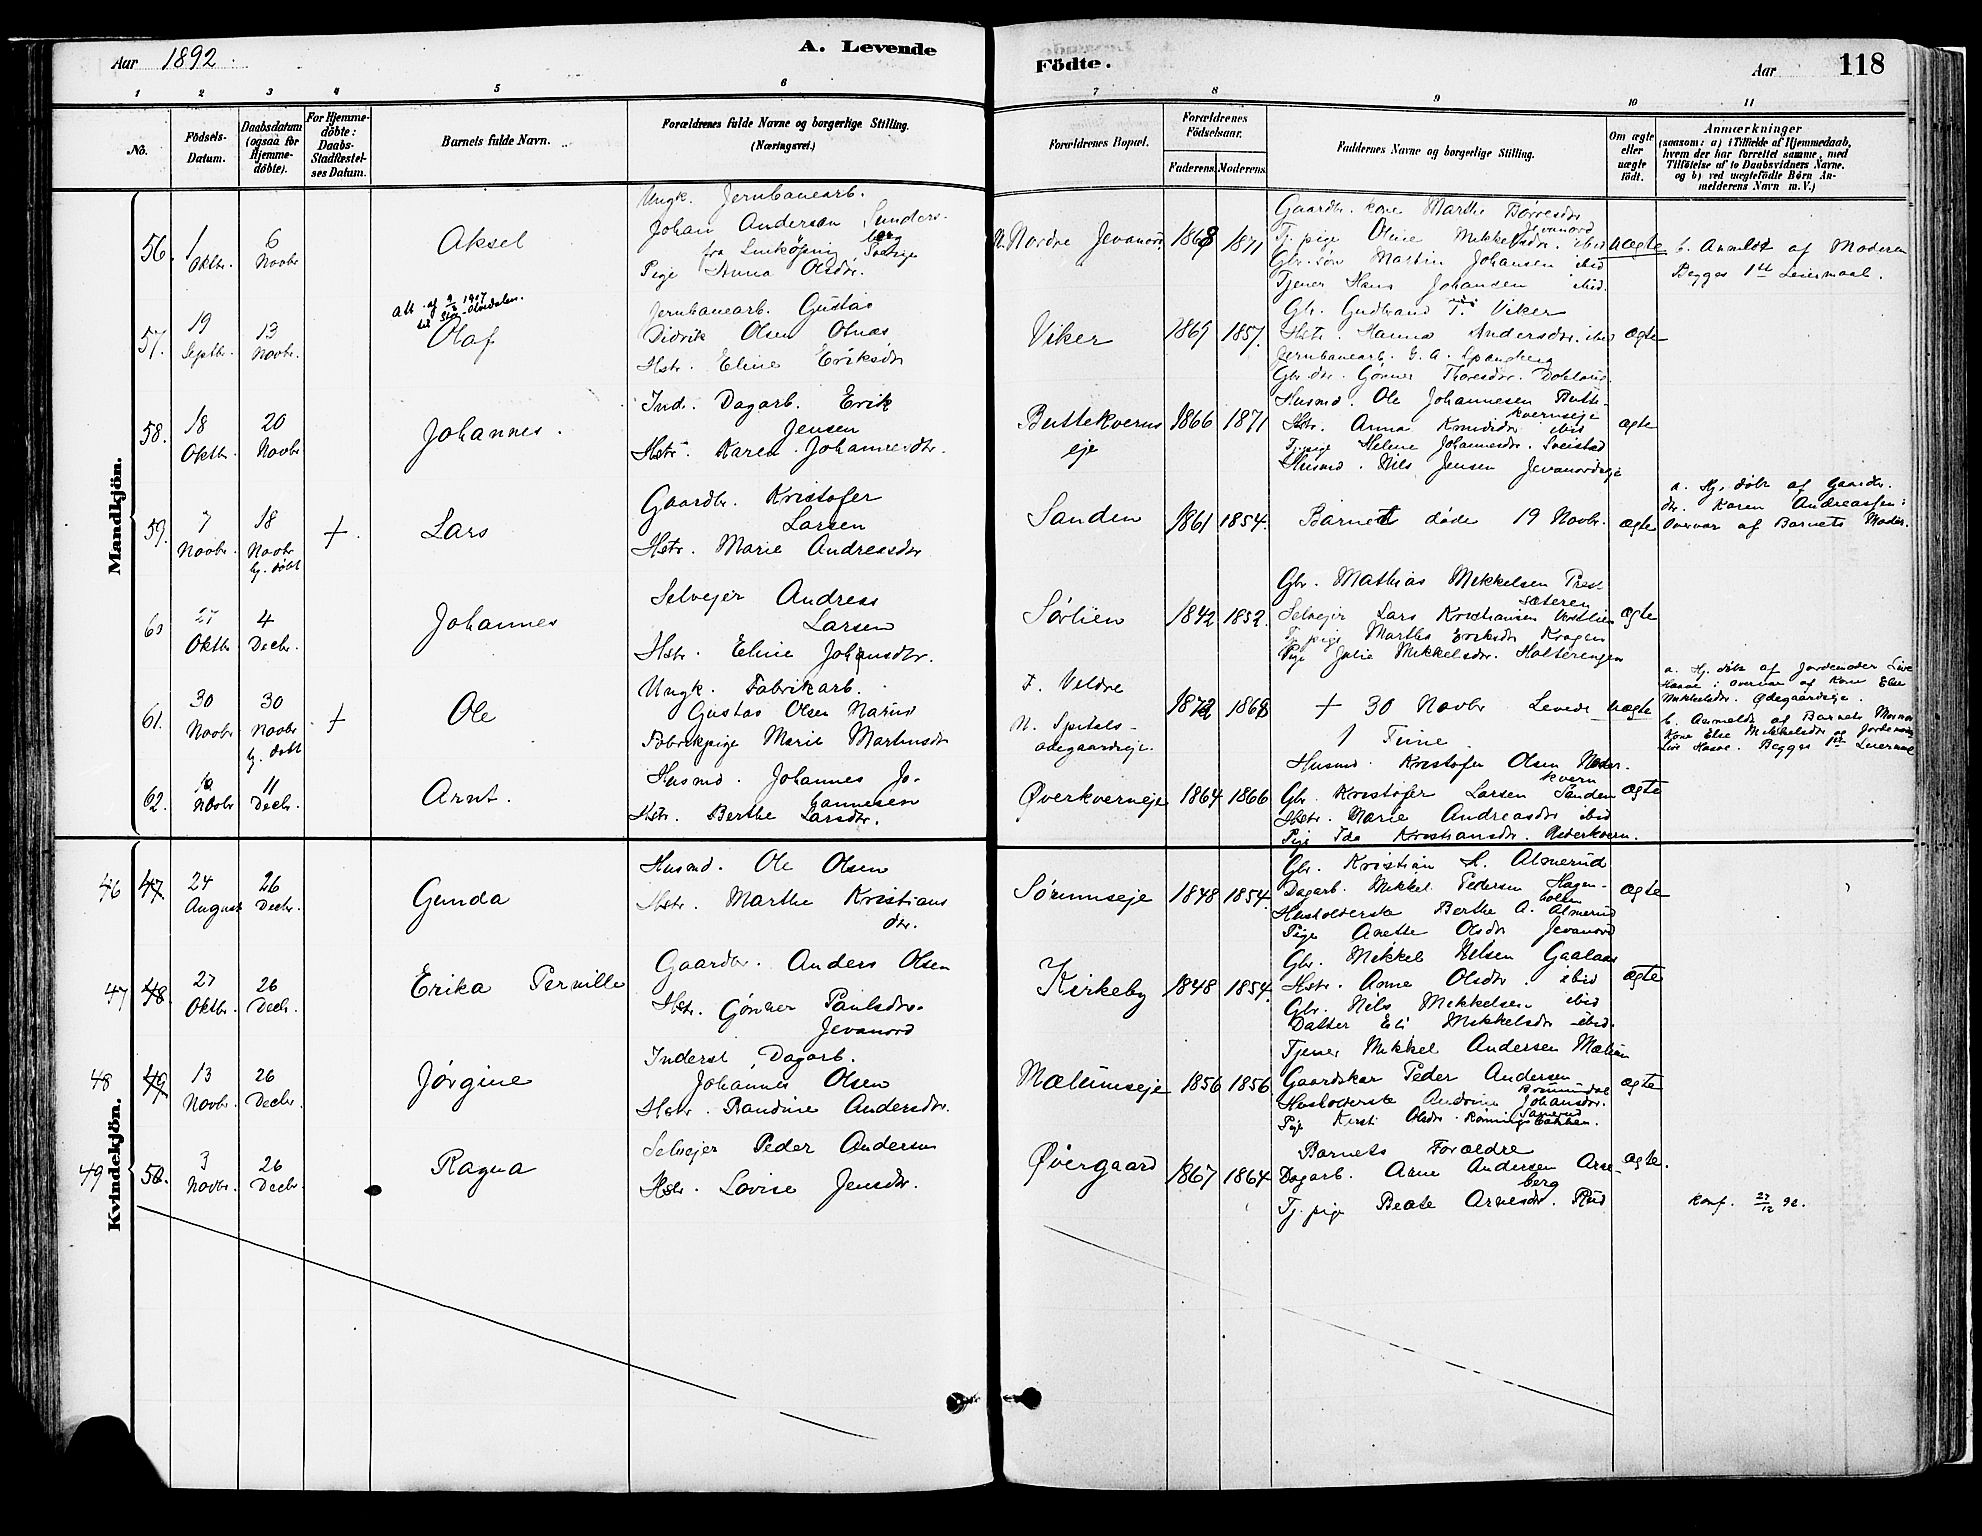 Aar 1892.
A. Levende
Födte.
Aar
118
1 2 3 4 5 6 7 8 9 10 11
No.
Födsels-Datum.
Daabsdatum (ogsaa for Hjemmedöbte).
For Hjemmedöbte: Daabs-Stadfæstelses Datum.
Barnets fulde Navn.
Forældrenes fulde Navne og borgerlige Stilling.
(Næringsvei.)
Forældrenes Bopæl.
Forældrenes Födselsaar.
Faderens. Moderens.
Faddernes Navne og borgerlige Stilling.
Om ægte eller uægte födt.
Anmærkninger
(saasom: a) i Tilfælde af Hjemmedaab, hvem der har forrettet samme, med Tilföielse af to Daabsvidners Navne. og b) ved uægtefödte Börn Anmelderens Navn m. V.)
Mandkjön.
56. 1 Oktbr. 6 Novbr. Aksel
Ungk. Jernbanearb.
Johan Andersan Sunders-
fra Linköping Sverige
Pige Anna Olsdr.
N. Nordre Jevanord 1868 1871
Gaardbr. kone Marthe Börresdr
Jevanord
Tj. pige Oline Mikkelsdr. ibid
Gbr. søn Martin Johansen ibid
Tjener Hans Johansen ibid.
uægte
b. Anmeldt af Moderen
Begges 1ste Leiermaal.
57. 19 Septbr. 13 Novbr.
Olaf
Jernbanearb. Gustav
Didrik Olsen Olnæs
Hstr. Eline Eriksdr
Viker 1865 1857.
Gbr. Gudbrand T. Viker
Hstr. Hanna Andersdr. ibid
Jernbanearb. G. A. Spangberg
Gbr. dr. Gønner Thoresdr.
ægte
58. 18 Oktbr. 20 Novbr. Johannes.
Ind. Dagarb. Erik
Jensen
Hstr. Karen Johannesdr.
Buttekverns
eje
1866 1871
Husmd. Ole Johannesen Butte-
kvernseje
Hstr. Anna Knudsdr ibid
Tj. pige Helene Johannesdr. Sveistad
Husmd. Nils Jensen Jevanordseje
ægte
59. 7 Novbr. 18 Novbr hj. døbt + Lars
Gaardbr. Kristofer
Larsen
Hstr. Marie Andreasdr
Sanden 1861 1854.
Barnet døde 19 Novbr.
ægte
a. Hj. døbt af Gaardbr.
dr. Karen Andreassen i
Overvær af Barnets Moder.
60 27 Oktbr 4 Decbr. Johannes
Selvejer Andreas
Larsen
Hstr. Eline Johansdtr.
Sørlien 1842 1852.
Gbr. Mathias Mikkelsen Præst-
sæteren
Selvejer Lars Kristiansen Vestlien
Tj. pige Marthe Eriksdr Kragen
Pige Julie Mikkelsdr. Holterengen
ægte
61. 30 Novbr 30 Novbr hj. døbt + Ole
Ungk. Fabrikarb.
Gustav Olsen Narud
Fabrikpige Marie Martinsdr
F. Veldre
M. Spitals-
ødegaardeje.
1872 1868
+ 30 Novbr Levede
1 Time.
uægte
a. Hj. døbt af Jordemoder Live
Hasve i Overvær af Kone Else
Mikkelsdr. Ødegaardseje.
b. Anmeldt af Barnets Mormor
Kone Else Mikkelsdr og Jordemoder
Live Hasve. Begges 1ste Leiermaal
62. Novbr 11 Decbr. Arnt.
Husmd. Johannes Jo-
hannesen
Hstr. Berthe Larsdr.
Øverkverneje 1864 1866
Husmd. Kristofer Olsen Neder-
kvern
Gbr. Kristofer Larsen Sanden
Hstr. Marie Andreasdr ibid
Pige Ida Kristiansdr. Nederkvern.
ægte
Kvindekjön.
46 47 24 August 26 Decbr. Gunda
Husmd. Ole Olsen
Hstr. Marthe Kristians
dr.
Sørumseje 1848 1854.
Gbr. Kristian H. Almerud
Dagarb. Mikkel Pedersen Hagen-
Husholderske Berthe A. Almerud
Pige Anette Olsdr Jevanord
ægte
47 48. 27 Oktbr. 26 Decbr. Erika Pernille
Gaardbr. Anders Olsen
Hstr. Gønner Paulsdr.
Jevanord
Kirkeby 1848 1854.
Gbr. Mikkel Nilsen Gaalaas
Hstr. Anne Olsdr. ibid
Gbr. Nils Mikkelsen ibid
Datter Eli Mikkelsdr ibid.
ægte
48 49 13 Novbr. 26 Decbr. Jørgine
Inderst Dagarb.
Johannes Olsen
Hstr. Randine Andersdr.
Mælumseje 1856 1856.
Tjener Mikkel Andersen Mælum
Gaardskar Peder Andersen
Brumundal
Husholderske Andrine Johansdr.
Pige Kersti Olsdr. Rønningsbakken.
ægte
49 50. 3 Novbr. 26 Decbr. Ragna
Selvejer Peder Andersen
Hstr. Lovise Jensdr.
Øvergaard 1867 1864
Barnets Forældre
Dagarb. Arne Andersen Arne-
berg
Tj. pige Beate Arnesdr. Rud
ægte.
Konf. 27/12 92.